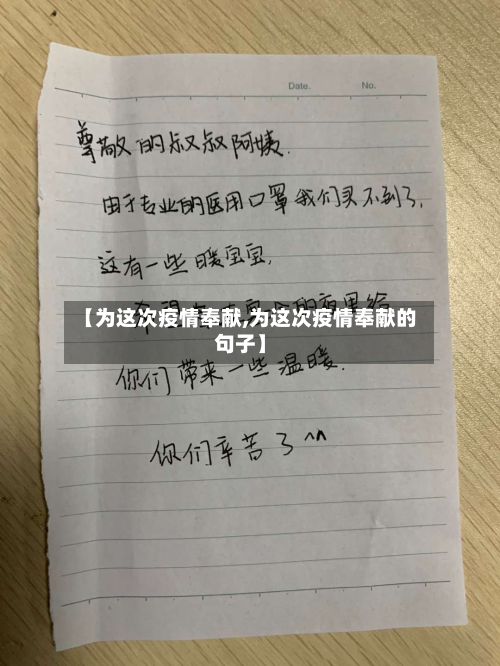 Date.
No.
尊敬的叔叔阿姨.
由于专业的医用口罩我们买不到了,
这有一些暖宝宝,
【为这次疫情奉献,为这次疫情奉献的
句子】
你们带来一些温暖.
你们辛苦了^^